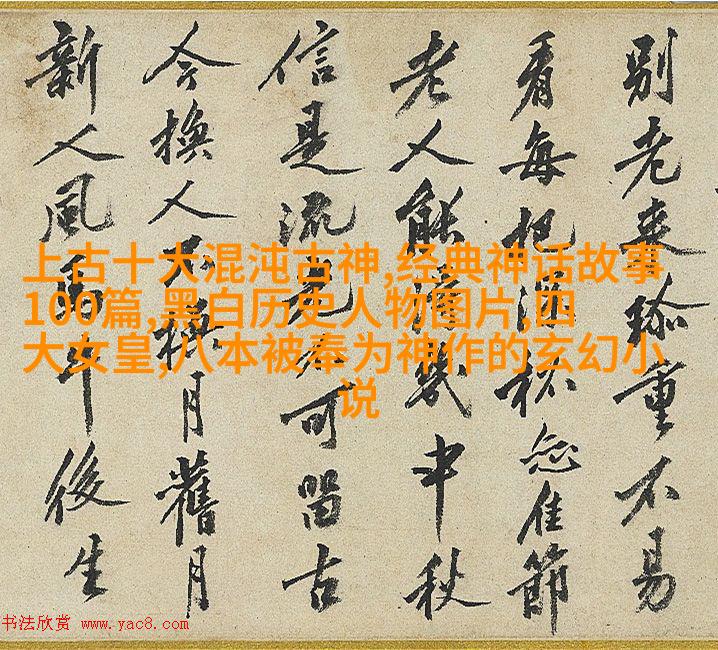 別老來珎重不易
看每把深杯佳節
老人能得幾中秋
信是流光不可留古
今換人不換月舊月
新人風馬牛後生
上古十大混沌古神,经典神话故事
100篇,黑白历史人物图片,四
大女皇,八本被奉为神作的玄幻小
说
书法欣赏 www.yac8.com